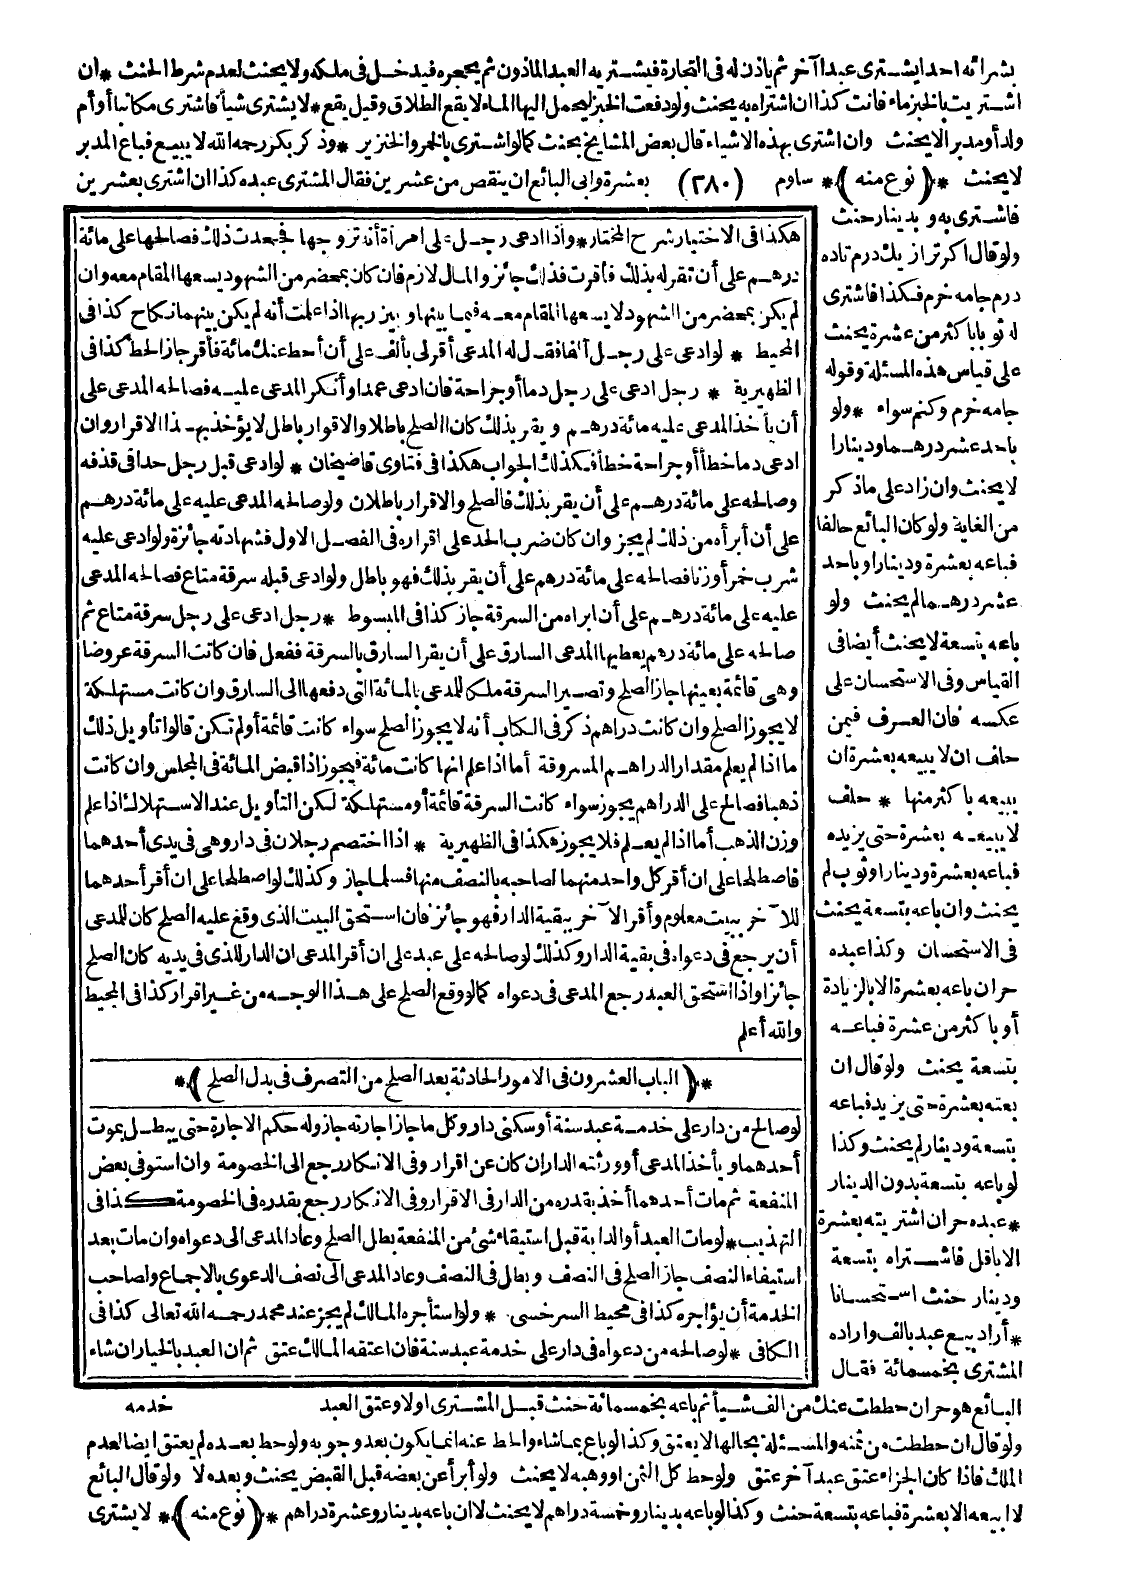 بشرائه احدا يشترى عبدا آخر ثم ياذن له فى التجارة فيشتريه العبد الماذون ثم يحجره فيدخل فى ملكه ولا يحنث لعدم شرط الحنث * ان
اشتريت بالخبز ماء فانت كذا ان اشتراه به يحنث ولو دفعت الخبز ليحمل اليها الماء لا يقع الطلاق وقيل يقع * لا يشترى شيأ فاشترى مكاتبا أو أم
ولد أو مدبرا لا يحنث وان اشترى بهذه الاشياء قال بعض المشايخ يحنث كما لو اشترى بالخمر والخنزير * وذكر بكر رحمه الله لا يبيع فباع المدبر
لا يحنث *(نوع منه)* ساوم (٢٨٠) بعشرة وابى البائع ان ينقص من عشرين فقال المشترى عبده كذا ان اشترى بعشرين
فاشترى به وبدينار حنث
ولو قال اكر تراز يك درم تاده
درم جامه خرم فكذا فاشترى
له ثوبا باكثر من عشرة يحنث
على قياس هذه المسئلة وقوله
جامه خرم وكنم سواء * ولو
باحد عشر درهما ودينارا
لا يحنث وان زاد على ماذكر
من الغاية ولو كان البائع حالفا
فباعه بعشرة ودينارا وباحد
عشر درهما لم يحنث ولو
باعه بتسعة لا يحنث أيضا فى
القياس وفى الاستحسان على
عكسه فان العرف فيمن
حلف ان لا يبيعه بعشرة ان
يبيعه باكثر منها * حلف
لا يبيعه بعشرة حتى يزيده
فباعه بعشرة ودينار اوثوب لم
يحنث وان باعه بتسعة يحنث
فى الاستحسان وكذا عبده
حر ان باعه بعشرة الا بالزيادة
أو باكثر من عشرة فباعه
بتسعة يحنث ولو قال ان
بعته بعشرة حتى يزيد فباعه
بتسعة ودينار لم يحنث وكذا
لو باعه بتسعة بدون الدينار
* عبده حر ان اشتريته بعشرة
الا باقل فاشتراه بتسعة
ودينار حنث استحسانا
* أراد بيع عبد بالف واراده
المشترى بخمسمائة فقال
البائع هو حر ان حططت عنك من الف شيأ ثم باعه بخمسمائة حنث قبل المشترى اولا وعتق العبد
ولو قال ان حططت من ثمنه والمسئلة بحالها لا يعتق وكذا لو باع بما شاء والحط عنه انما يكون بعد وجوبه ولو حط بعده لم يعتق ايضا لعدم
الملك فاذا كان الجزاء عتق عبد آخر عتق ولو حط كل الثمن او وهبه لا يحنث ولو أبرأ عن بعضه قبل القبض يحنث وبعده لا ولو قال البائع
لا ابيعه الا بعشرة فباعه بتسعة حنث وكذا لو باعه بدينار وخمسة دراهم لا يحنث لا ان باعه بدينار وعشرة دراهم *(نوع منه)* لا يشترى
هكذا فى الاختيار شرح المختار * واذا ادعى رجل على امرأة أنه تزوجها فجحدت ذلك فصالحها على مائة
درهم على أن تقر له بذلك فأقرت فذلك جائز والمال لازم فان كان بمحضر من الشهود يسعها المقام معه وان
لم يكن بمحضر من الشهود لا يسعها المقام معه فيما بينها وبين ربها اذا علمت أنه لم يكن بينهما نكاح كذا فى
المحيط * لو ادعى على رجل ألفا فقال له المدعى أقر لى بألف على أن أحط عنك مائة فأقر جاز الحط كذا فى
الظهيرية * رجل ادعى على رجل دما أو جراحة فان ادعى عمدا وأنكر المدعى عليه فصالحه المدعى على
أن يأخذ المدعى عليه مائة درهم ويقر بذلك كان الصلح باطلا والاقرار باطل لا يؤخذ بهذا الاقرار وان
ادعى دما خطأ أو جراحة خطأ فكذلك الجواب هكذا فى فتاوى قاضيخان * لو ادعى قبل رجل حدا فى قذفه
وصالحه على مائة درهم على أن يقر بذلك فالصلح والاقرار باطلان ولو صالحه المدعى عليه على مائة درهم
على أن أبرأه من ذلك لم يجز وان كان ضرب الحد على اقراره فى الفصل الاول فشهادته جائزة ولو ادعى عليه
شرب خمر أو زنا فصالحه على مائة درهم على أن يقر بذلك فهو باطل ولو ادعى قبله سرقة متاع فصالحه المدعى
عليه على مائة درهم على أن ابراه من السرقة جاز كذا فى المبسوط * رجل ادعى على رجل سرقة متاع ثم
صالحه على مائة درهم يعطيها المدعى السارق على أن يقر السارق بالسرقة ففعل فان كانت السرقة عروضا
وهى قائمة بعينها جاز الصلح وتصير السرقة ملكا للمدعى بالمائة التى دفعها الى السارق وان كانت مستهلكة
لا يجوز الصلح وان كانت دراهم ذكر فى الكتاب أنه لا يجوز الصلح سواء كانت قائمة أولم تكن قالوا تأويل ذلك
ما اذا لم يعلم مقدار الدراهم المسروقة أما اذا علم انها كانت مائة فيجوز اذا قبض المائة فى المجلس وان كانت
ذهبا فصالح على الدراهم يجوز سواء كانت السرقة قائمة أو مستهلكة لكن التأويل عند الاستهلاك اذا علم
وزن الذهب أما اذا لم يعلم فلا يجوز هكذا فى الظهيرية * اذا اختصم رجلان فى دار وهى فى يدى أحدهما
فاصطلحا على ان أقر كل واحد منهما لصاحبه بالنصف منها فسلما جاز وكذلك لو اصطلحا على ان أقر أحدهما
للآخر ببيت معلوم وأقر الآخر ببقية الدار فهو جائز فان استحق البيت الذى وقع عليه الصلح كان للمدعى
أن يرجع فى دعواه فى بقية الدار وكذلك لو صالحه على عبد على ان أقر المدعى ان الدار للذى فى يديه كان الصلح
جائزا واذا استحق العبد رجع المدعى فى دعواه كما لو وقع الصلح على هذا الوجه من غير اقرار كذا فى المحيط
والله أعلم
*(الباب العشرون فى الامور الحادثة بعد الصلح من التصرف فى بدل الصلح)*
لو صالح من دار على خدمة عبد سنة أو سكنى دار وكل ما جاز اجارته جاز وله حكم الاجارة حتى يبطل بموت
أحدهما ويأخذ المدعى أو ورثته الدار ان كان عن اقرار وفى الانكار رجع الى الخصومة وان استوفى بعض
المنفعة ثم مات أحدهما أخذ بقدره من الدار فى الاقرار وفى الانكار رجع بقدره فى الخصومة كذا فى
التهذيب * لو مات العبد أو الدابة قبل استيفاء شئ من المنفعة بطل الصلح وعاد المدعى الى دعواه وان مات بعد
استيفاء النصف جاز الصلح فى النصف وبطل فى النصف وعاد المدعى الى نصف الدعوى بالاجماع ولصاحب
الخدمة أن يؤاجره كذا فى محيط السرخسى * ولو استأجره المالك لم يجز عند محمد رحمه الله تعالى كذا فى
الكافى * لو صالحه من دعواه فى دار على خدمة عبد سنة فان اعتقه المالك عتق ثم ان العبد بالخيار ان شاء
خدمه